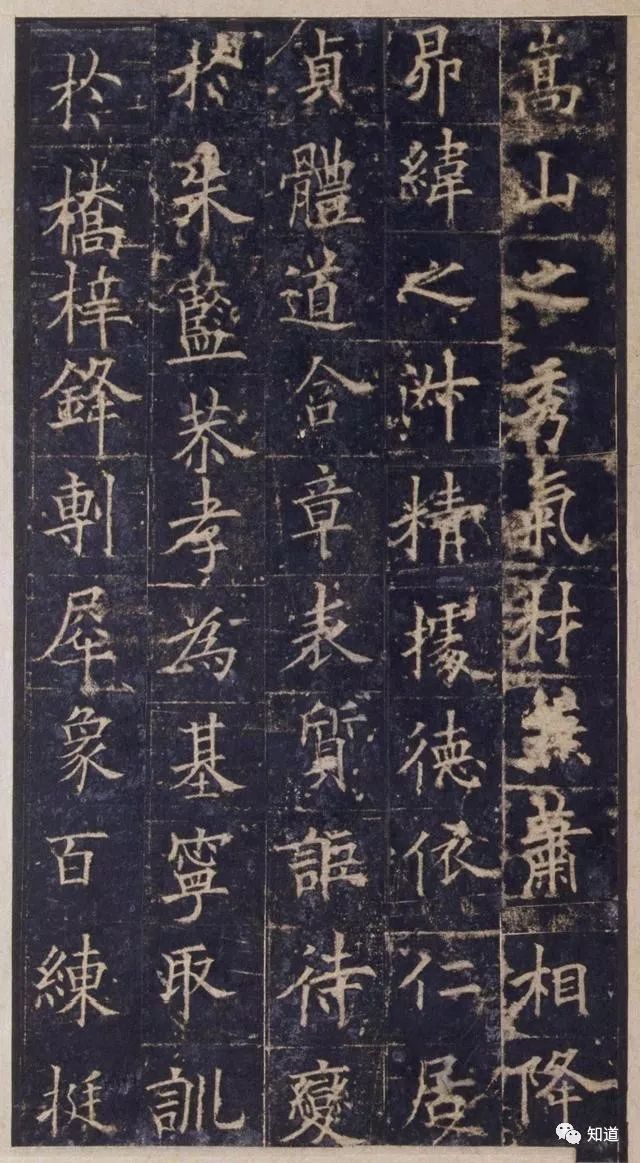 嵩山之秀氣材兼蕭相降
昴緯之淑精據德依仁居
貞體道含章表質詎待變
於朱藍恭孝為基寧取訓
於橋梓鋒剸犀象百練挺
知道